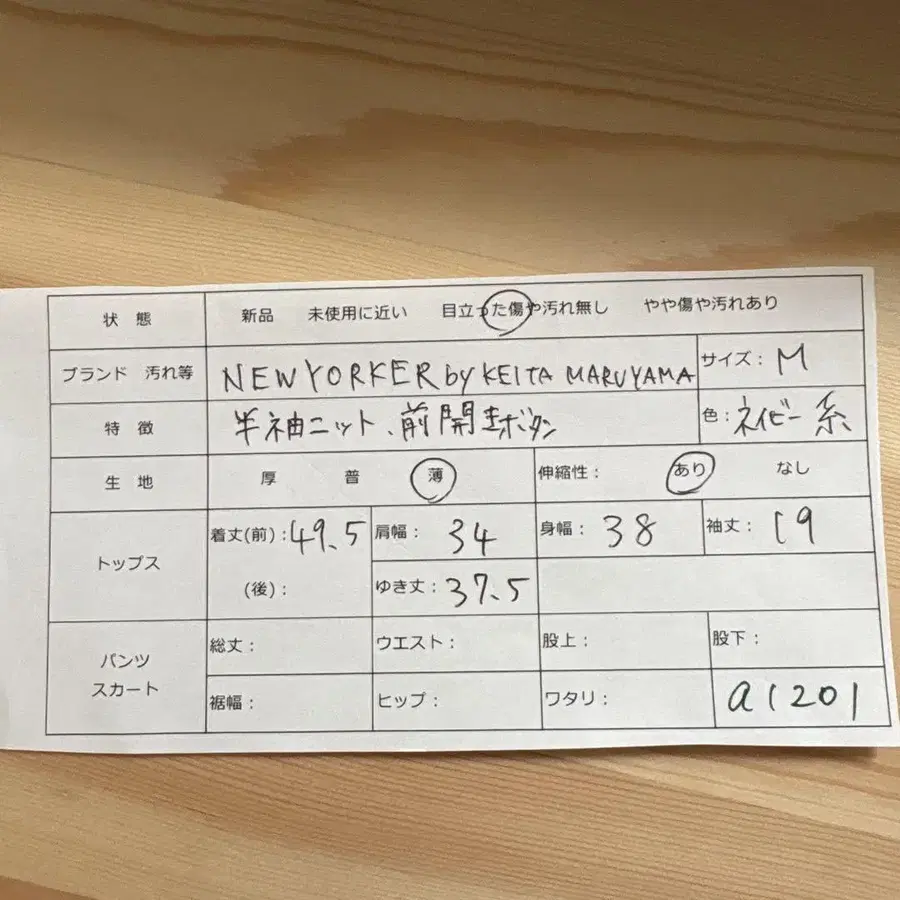 状 態 新品 未使用に近い 目立った傷や汚れ無し やや傷や汚れあり
ブランド 汚れ等 NEWYORKER by KEITA MARUYAMA サイズ: M
特 徴 半袖ニット、前開きボタン 色: ネイビー系
生 地 厚 普 薄 伸縮性: あり なし
トップス 着丈(前):49.5 肩幅: 34 身幅: 38 袖丈: 19
(後): ゆき丈: 37.5
パンツ スカート 総丈: ウエスト: 股上: 股下:
裾幅: ヒップ: ワタリ: a1201